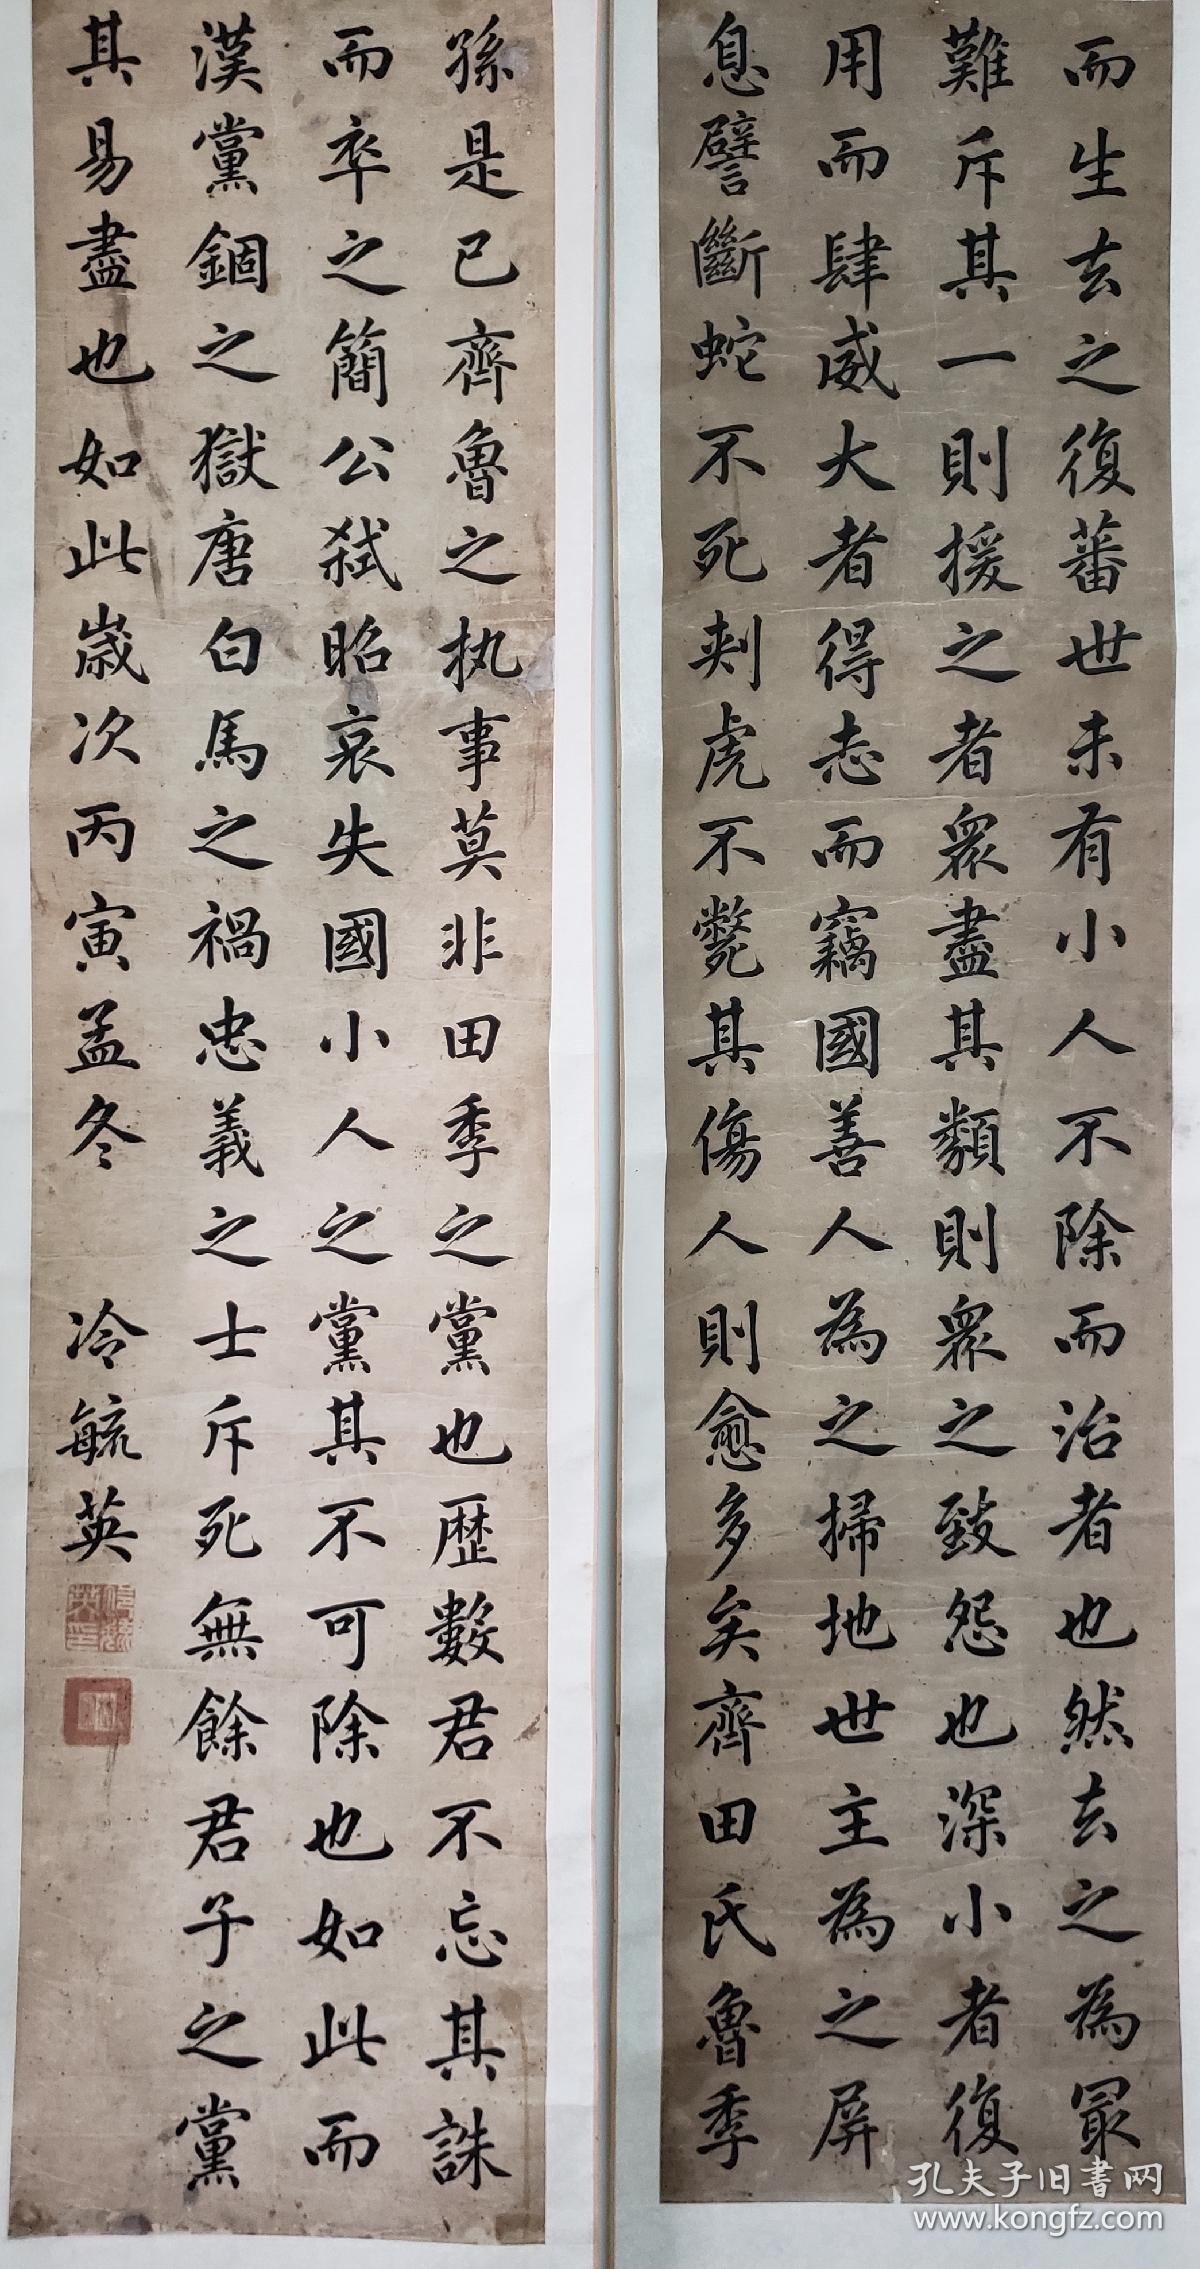 而生去之復蕃世未有小人不除而治者也然去之為㝡
難斥其一則援之者衆盡其類則衆之致怨也深小者復
用而肆威大者得志而竊國善人為之掃地世主為之屏
息譬斷蛇不死刺虎不斃其傷人則愈多矣齊田氏魯季
孫是已齊魯之执事莫非田季之黨也歷數君不忘其誅
而卒之簡公弑昭哀失國小人之黨其不可除也如此而
漢黨錮之獄唐白馬之禍忠義之士斥死無餘君子之黨
其易盡也如此歲次丙寅孟冬 冷毓英
孔夫子旧书网
www.kongfz.com